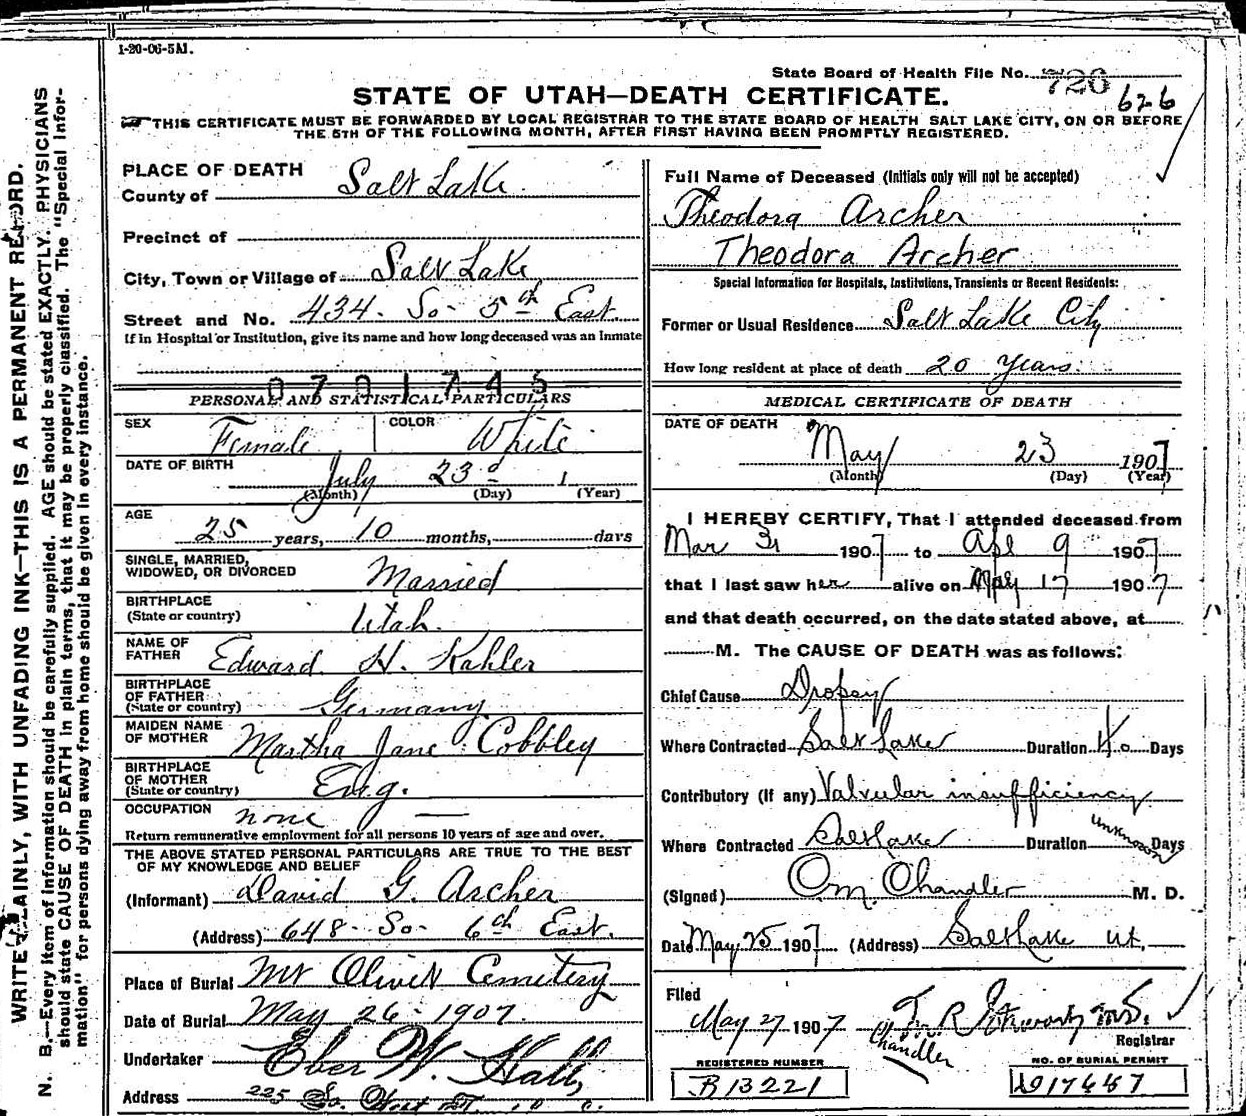 1-20-06-5M.
State Board of Health File No. 726
626
STATE OF UTAH—DEATH CERTIFICATE.
THIS CERTIFICATE MUST BE FORWARDED BY LOCAL REGISTRAR TO THE STATE BOARD OF HEALTH SALT LAKE CITY, ON OR BEFORE
THE 5TH OF THE FOLLOWING MONTH, AFTER FIRST HAVING BEEN PROMPTLY REGISTERED.
WRITE PLAINLY, WITH UNFADING INK—THIS IS A PERMANENT RECORD.
N. B.—Every item of information should be carefully supplied. AGE should be stated EXACTLY. PHYSICIANS
should state CAUSE OF DEATH in plain terms, that it may be properly classified. The "Special Infor-
mation" for persons dying away from home should be given in every instance.
PLACE OF DEATH
County of Salt Lake
Precinct of
City, Town or Village of Salt Lake
Street and No. 434 So 5th East
If in Hospital or Institution, give its name and how long deceased was an inmate
0701745
PERSONAL AND STATISTICAL PARTICULARS
SEX Female COLOR White
DATE OF BIRTH July 23d 1
(Month) (Day) (Year)
AGE
25 years, 10 months, days
SINGLE, MARRIED,
WIDOWED, OR DIVORCED Married
BIRTHPLACE
(State or country) Utah.
NAME OF
FATHER Edward H. Kahler
BIRTHPLACE
OF FATHER
(State or country) Germany
MAIDEN NAME
OF MOTHER Martha Jane Cobbley
BIRTHPLACE
OF MOTHER
(State or country) Eng.
OCCUPATION none —
Return remunerative employment for all persons 10 years of age and over.
THE ABOVE STATED PERSONAL PARTICULARS ARE TRUE TO THE BEST
OF MY KNOWLEDGE AND BELIEF
(Informant) David G. Archer
(Address) 648 So 6th East.
Place of Burial Mt Olivet Cemetery
Date of Burial May 26 - 1907.
Undertaker Eber W. Hall
Address 225 So. West
Full Name of Deceased (Initials only will not be accepted)
Theodora Archer
Theodora Archer
Special Information for Hospitals, Institutions, Transients or Recent Residents:
Former or Usual Residence Salt Lake City
How long resident at place of death 20 Years.
MEDICAL CERTIFICATE OF DEATH
DATE OF DEATH
May 23 1907
(Month) (Day) (Year)
I HEREBY CERTIFY, That I attended deceased from
Mar 31 1907 to Apl 9 1907
that I last saw her alive on May 17 1907
and that death occurred, on the date stated above, at
M. The CAUSE OF DEATH was as follows:
Chief Cause Dropsy
Where Contracted Salt Lake Duration 40 Days
Contributory (if any) Valvular insufficiency
Where Contracted Salt Lake Duration unknown Days
(Signed) O.M. Chandler M. D.
Date May 25 1907 (Address) Salt Lake Ut.
Filed
May 27 1907
Chandler
Registrar
REGISTERED NUMBER
B13221
NO. OF BURIAL PERMIT